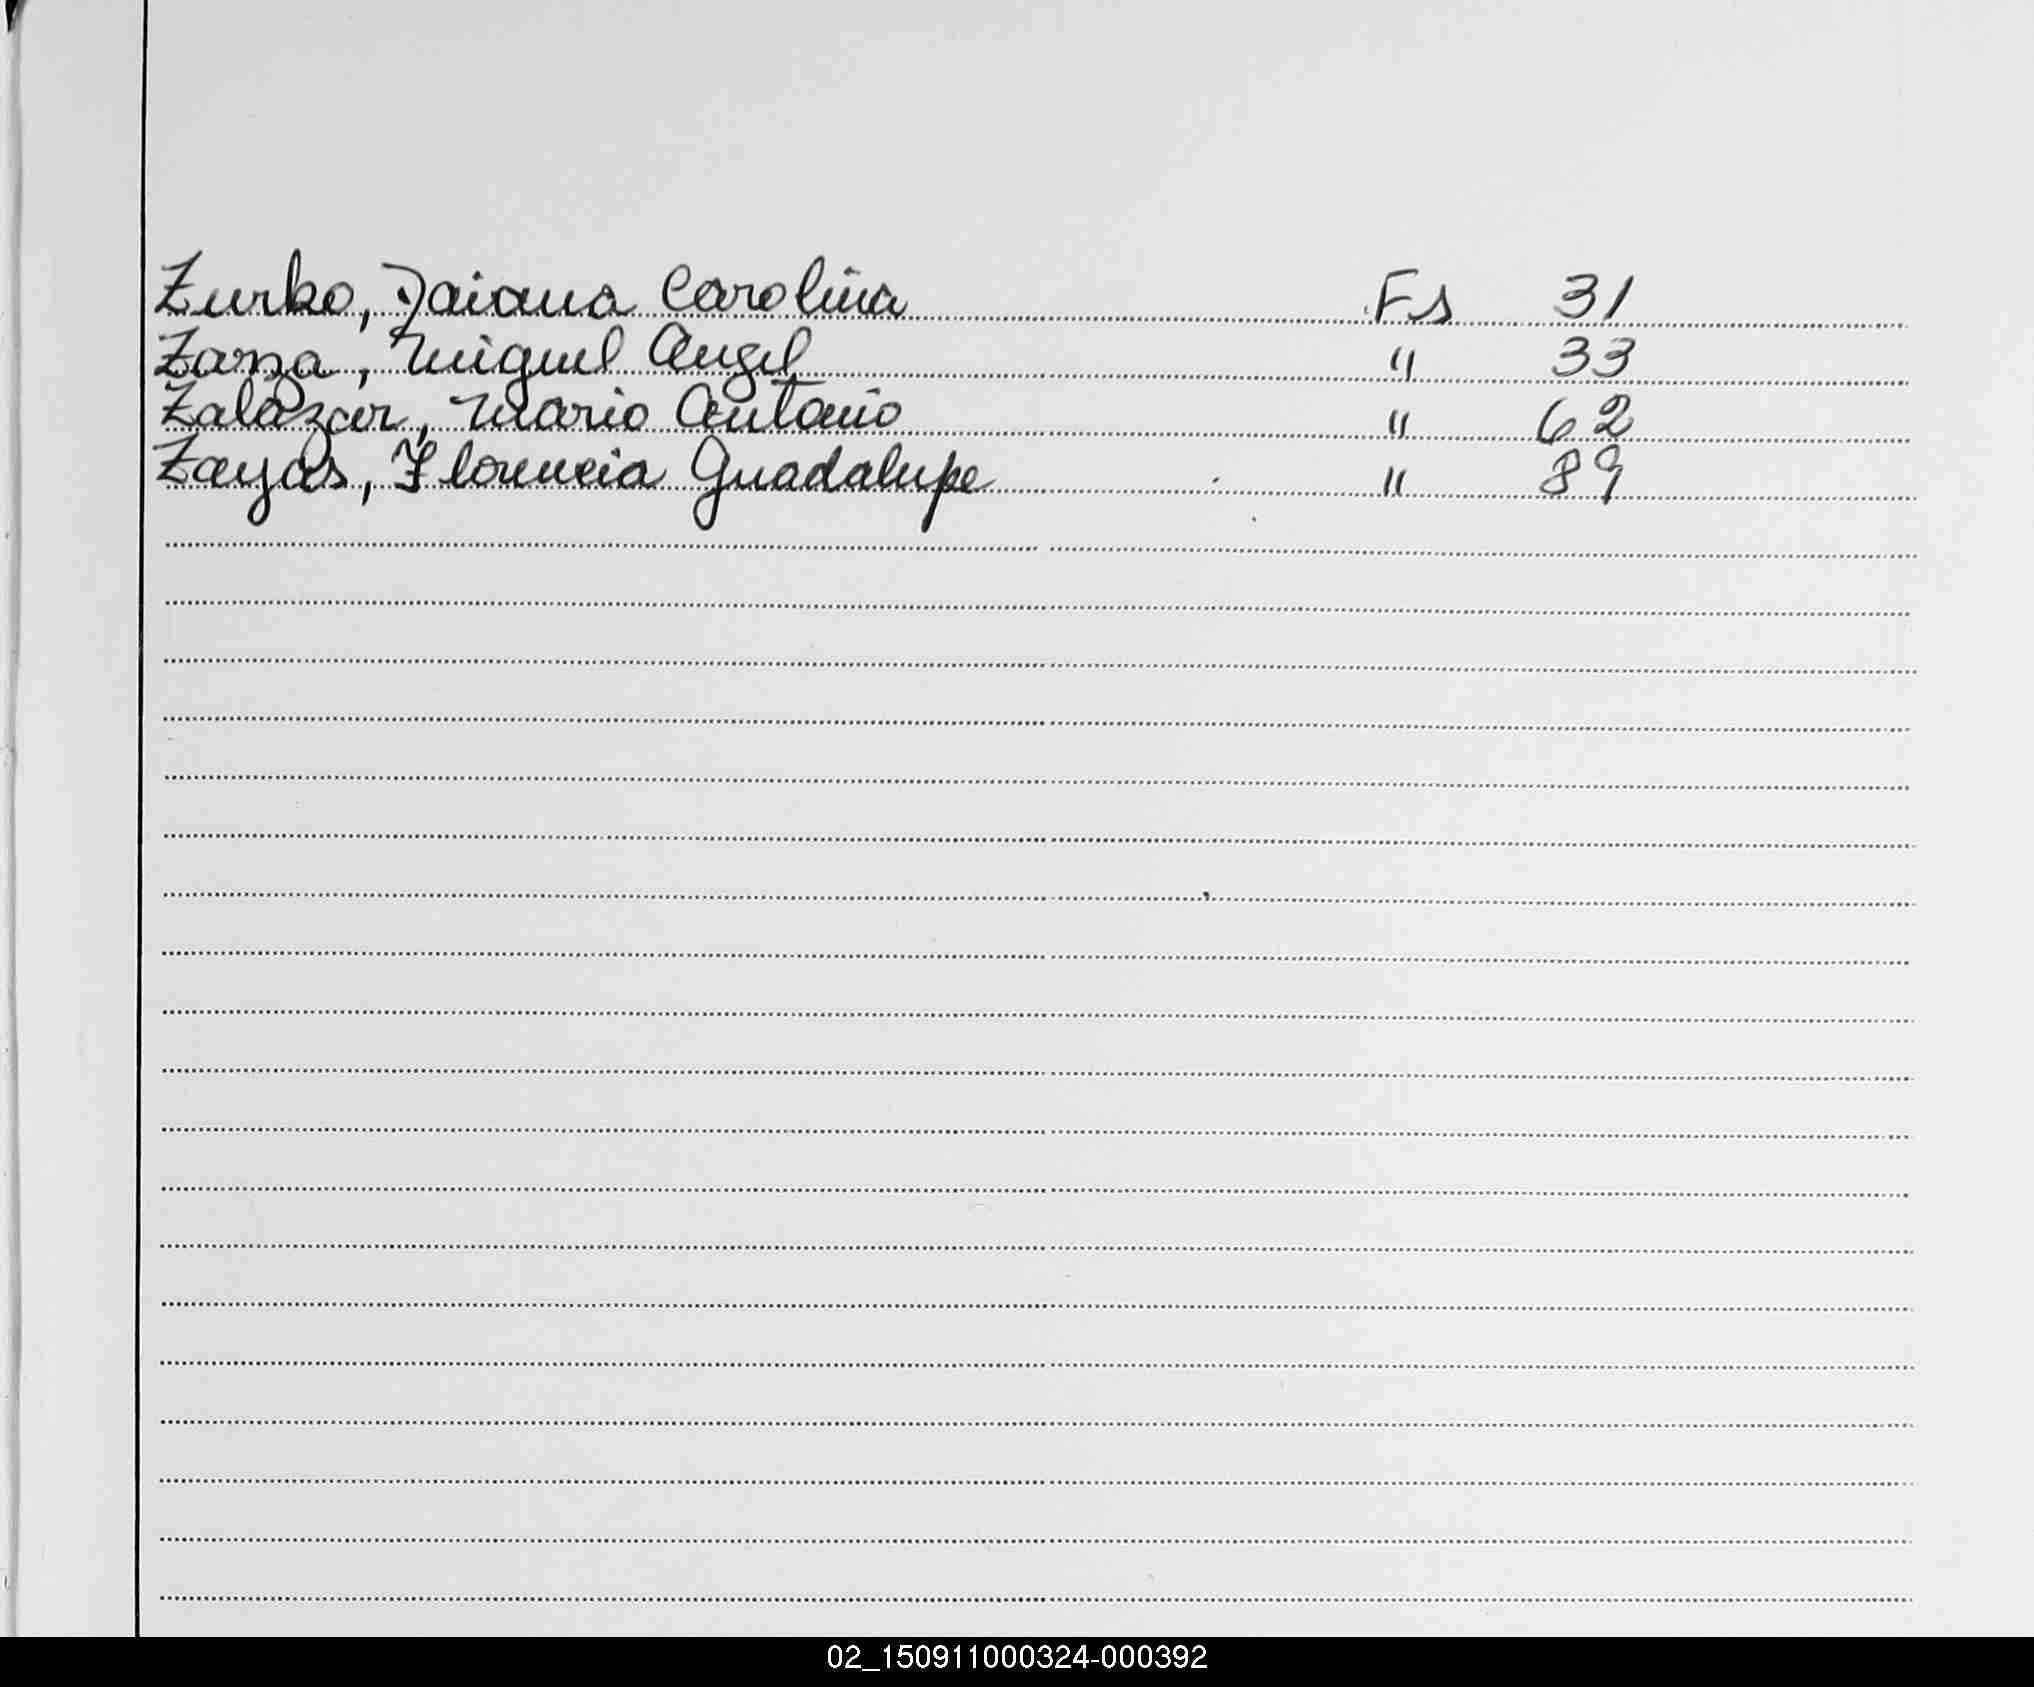 Zurko, Daiana Carolina Fs 31
Zarza, Miguel Angel " 33
Zalazar, Mario Antonio " 62
Zayas, Florencia Guadalupe " 89
02_150911000324-000392